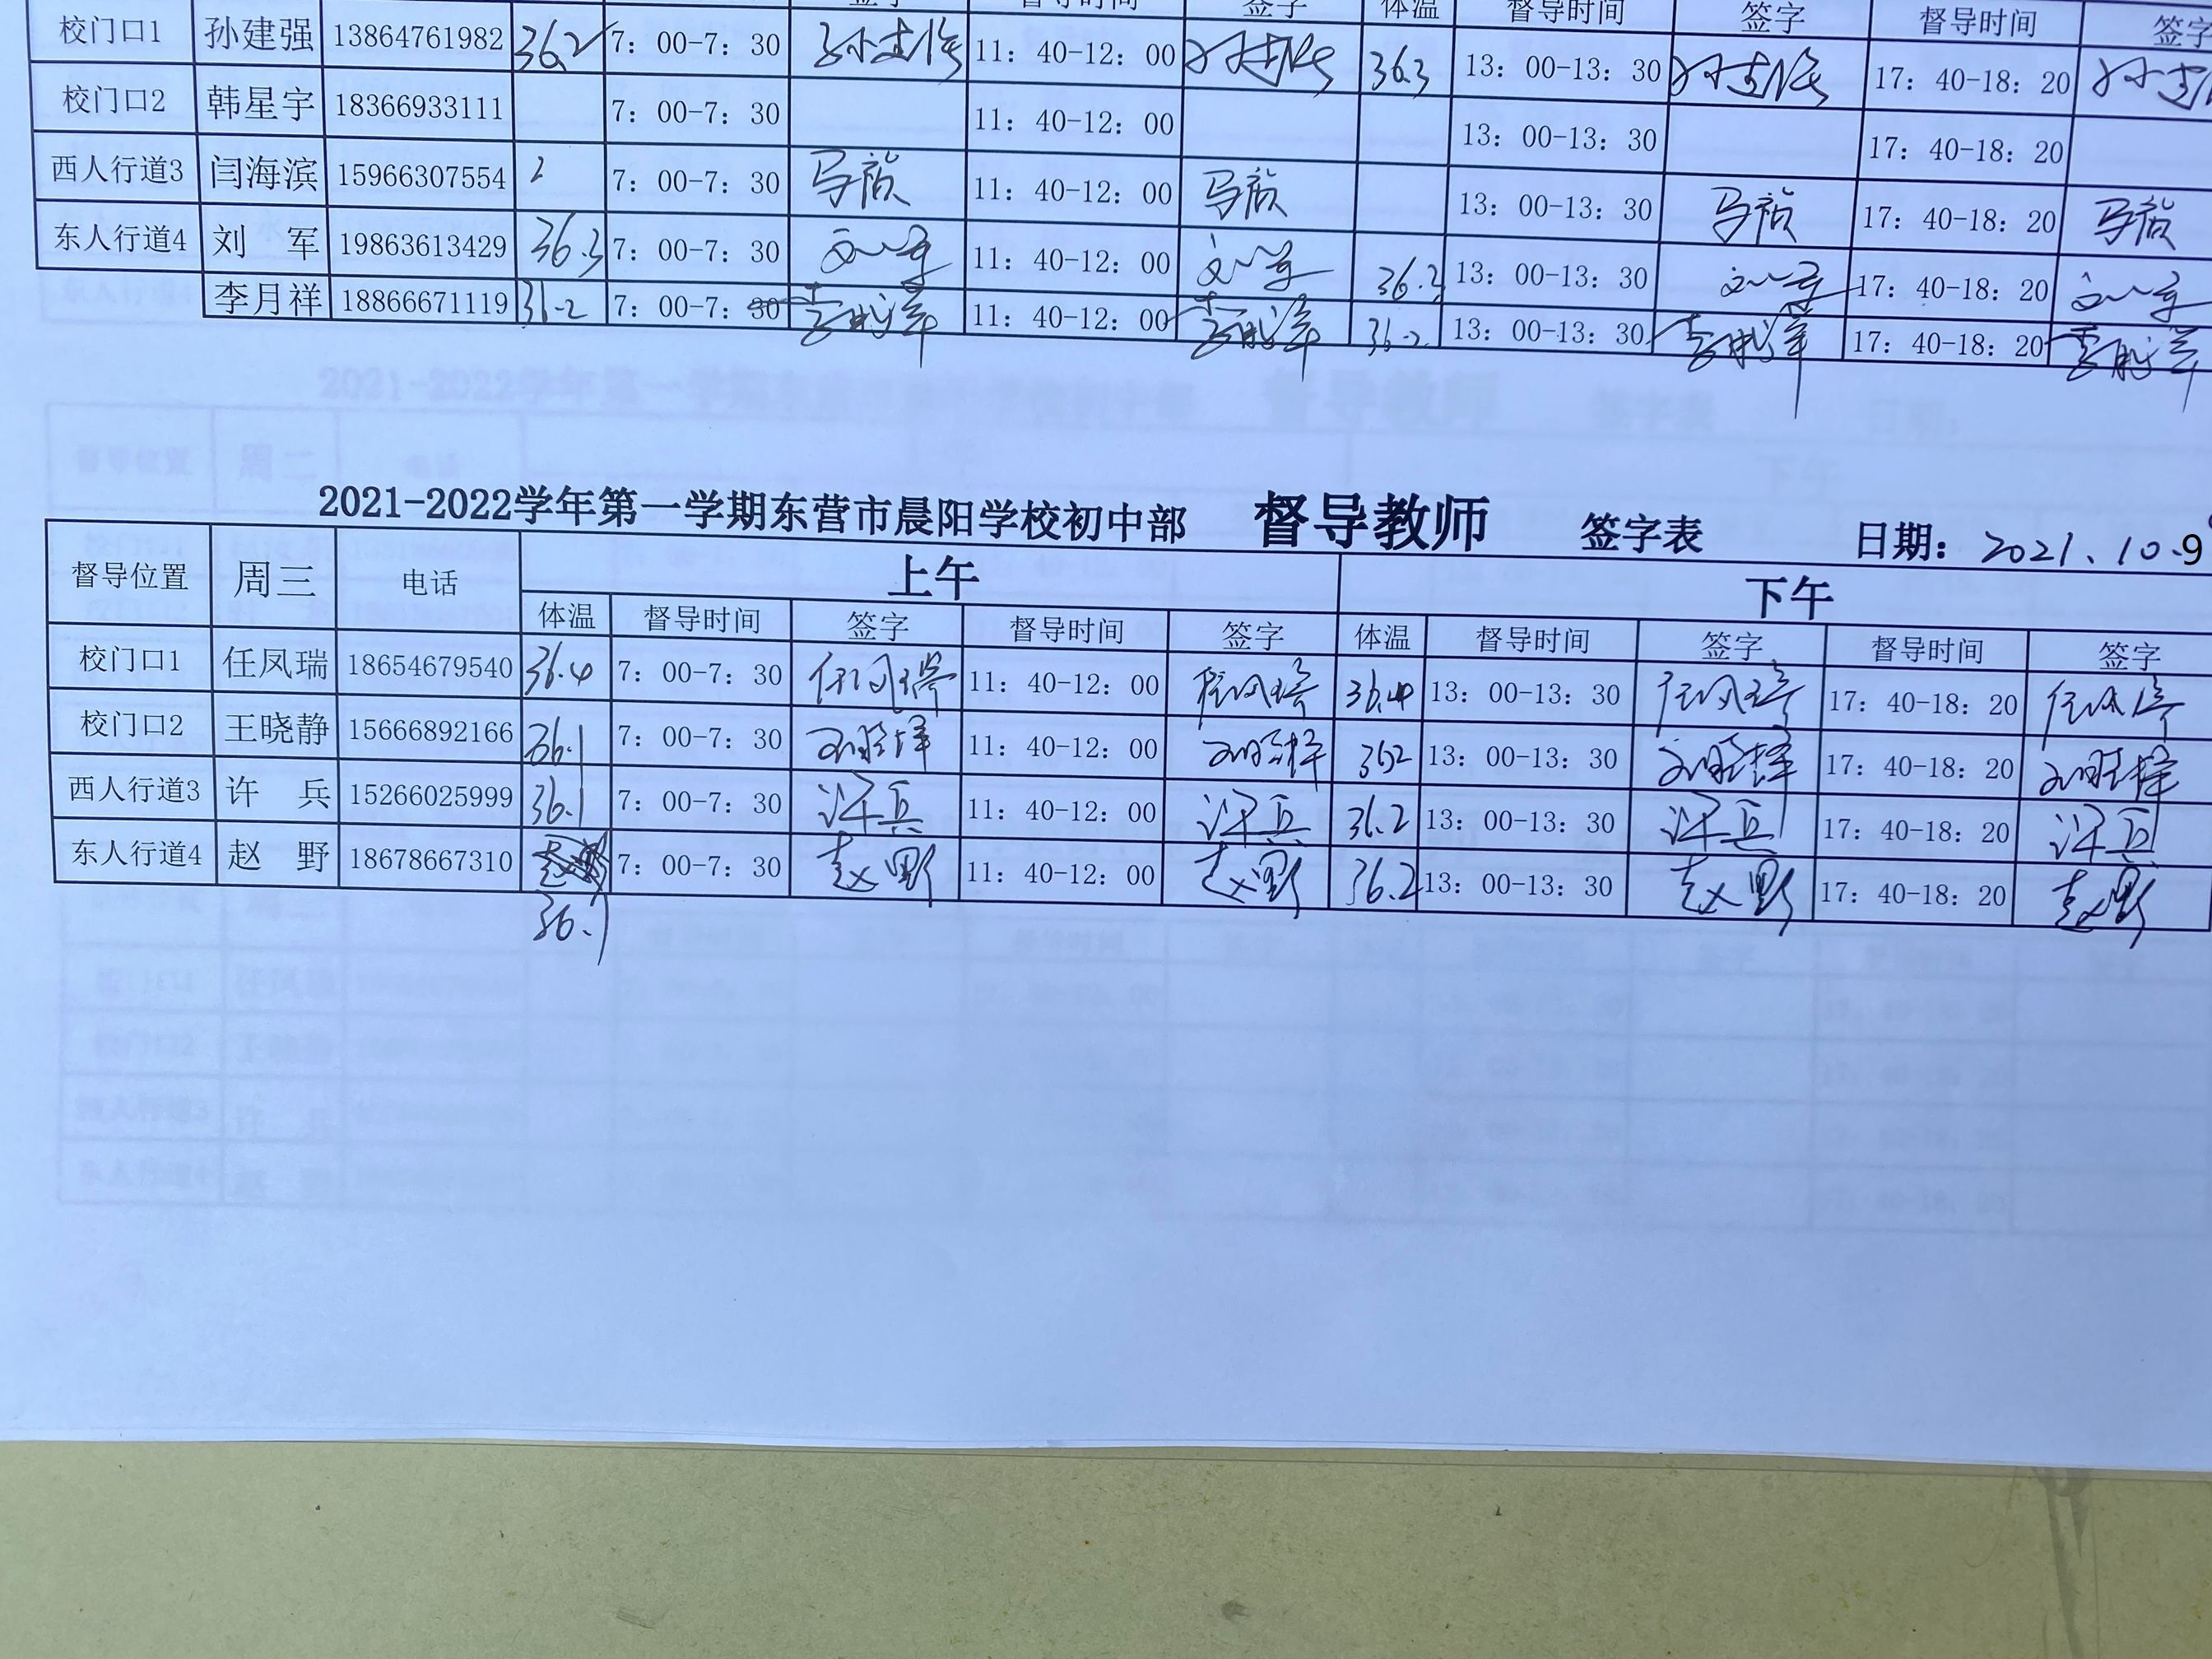 签字 督导时间 签字 体温 督导时间 签字 督导时间 签字
校门口1 孙建强 13864761982 36.2 7：00-7：30 孙建强 11：40-12：00 孙建强 36.3 13：00-13：30 孙建强 17：40-18：20
校门口2 韩星宇 18366933111 7：00-7：30 11：40-12：00 13：00-13：30 17：40-18：20
西人行道3 闫海滨 15966307554 2 7：00-7：30 11：40-12：00 13：00-13：30 17：40-18：20
东人行道4 刘 军 19863613429 36.3 7：00-7：30 刘军 11：40-12：00 刘军 36.2 13：00-13：30 刘军 17：40-18：20 刘军
李月祥 18866671119 36.2 7：00-7：30 李月祥 11：40-12：00 李月祥 36.2 13：00-13：30 李月祥 17：40-18：20 李月祥
2021-2022学年第一学期东营市晨阳学校初中部 督导教师 签字表 日期：2021.10.9
督导位置 周三 电话 上午 下午
体温 督导时间 签字 督导时间 签字 体温 督导时间 签字 督导时间 签字
校门口1 任凤瑞 18654679540 36.4 7：00-7：30 任凤瑞 11：40-12：00 任凤瑞 36.4 13：00-13：30 任凤瑞 17：40-18：20 任凤瑞
校门口2 王晓静 15666892166 36.1 7：00-7：30 11：40-12：00 362 13：00-13：30 17：40-18：20
西人行道3 许 兵 15266025999 36.1 7：00-7：30 许兵 11：40-12：00 许兵 36.2 13：00-13：30 许兵 17：40-18：20 许兵
东人行道4 赵 野 18678667310 7：00-7：30 赵野 11：40-12：00 赵野 36.2 13：00-13：30 赵野 17：40-18：20 赵野
36.1